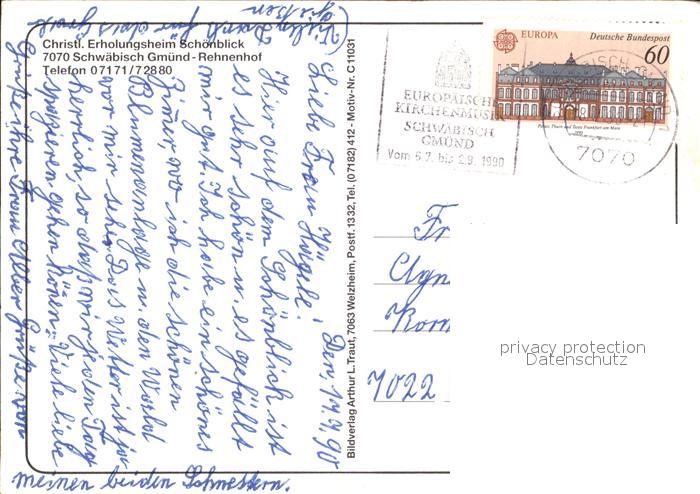 Christl. Erholungsheim Schönblick
7070 Schwäbisch Gmünd - Rehnenhof
Telefon 07171/72880
Bildverlag Arthur L. Traut, 7063 Welzheim, Postf. 1332, Tel. (07182) 412 - Motiv-Nr. C 11031
EUROPÄISCHE
KIRCHENMUSIK
SCHWÄBISCH
GMÜND
Vom 6.7. bis 2.9. 1990
EUROPA
Deutsche Bundespost
60
Palais Thurn und Taxis Frankfurt am Main
1990
7070
Den, 17.7.90
Liebe Frau
Hier auf dem Schönblick ist
es sehr schön u. es gefällt
mir gut. Ich habe ein schönes
wo ich die schönen
u. den Wald
vor mir sehe. Das Wetter ist ja
herrlich, so daß wir jeden Tag
spazieren gehen können. Viele liebe
Grüße Ihre Frau
Grüße von
meinen beiden Schwestern.
Vielen Dank für das
Fr
Agn
Korn
7022
privacy protection
Datenschutz